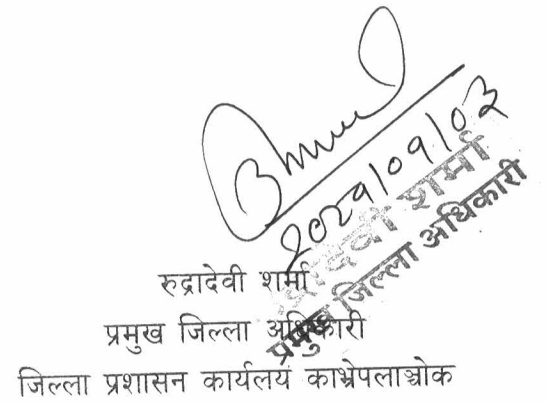 2021/01/03
रुद्रादेवी शर्मा
प्रमुख जिल्ला अधिकारी
रुद्रादेवी शर्मा
प्रमुख जिल्ला अधिकारी
जिल्ला प्रशासन कार्यलय काभ्रेपलाञ्चोक